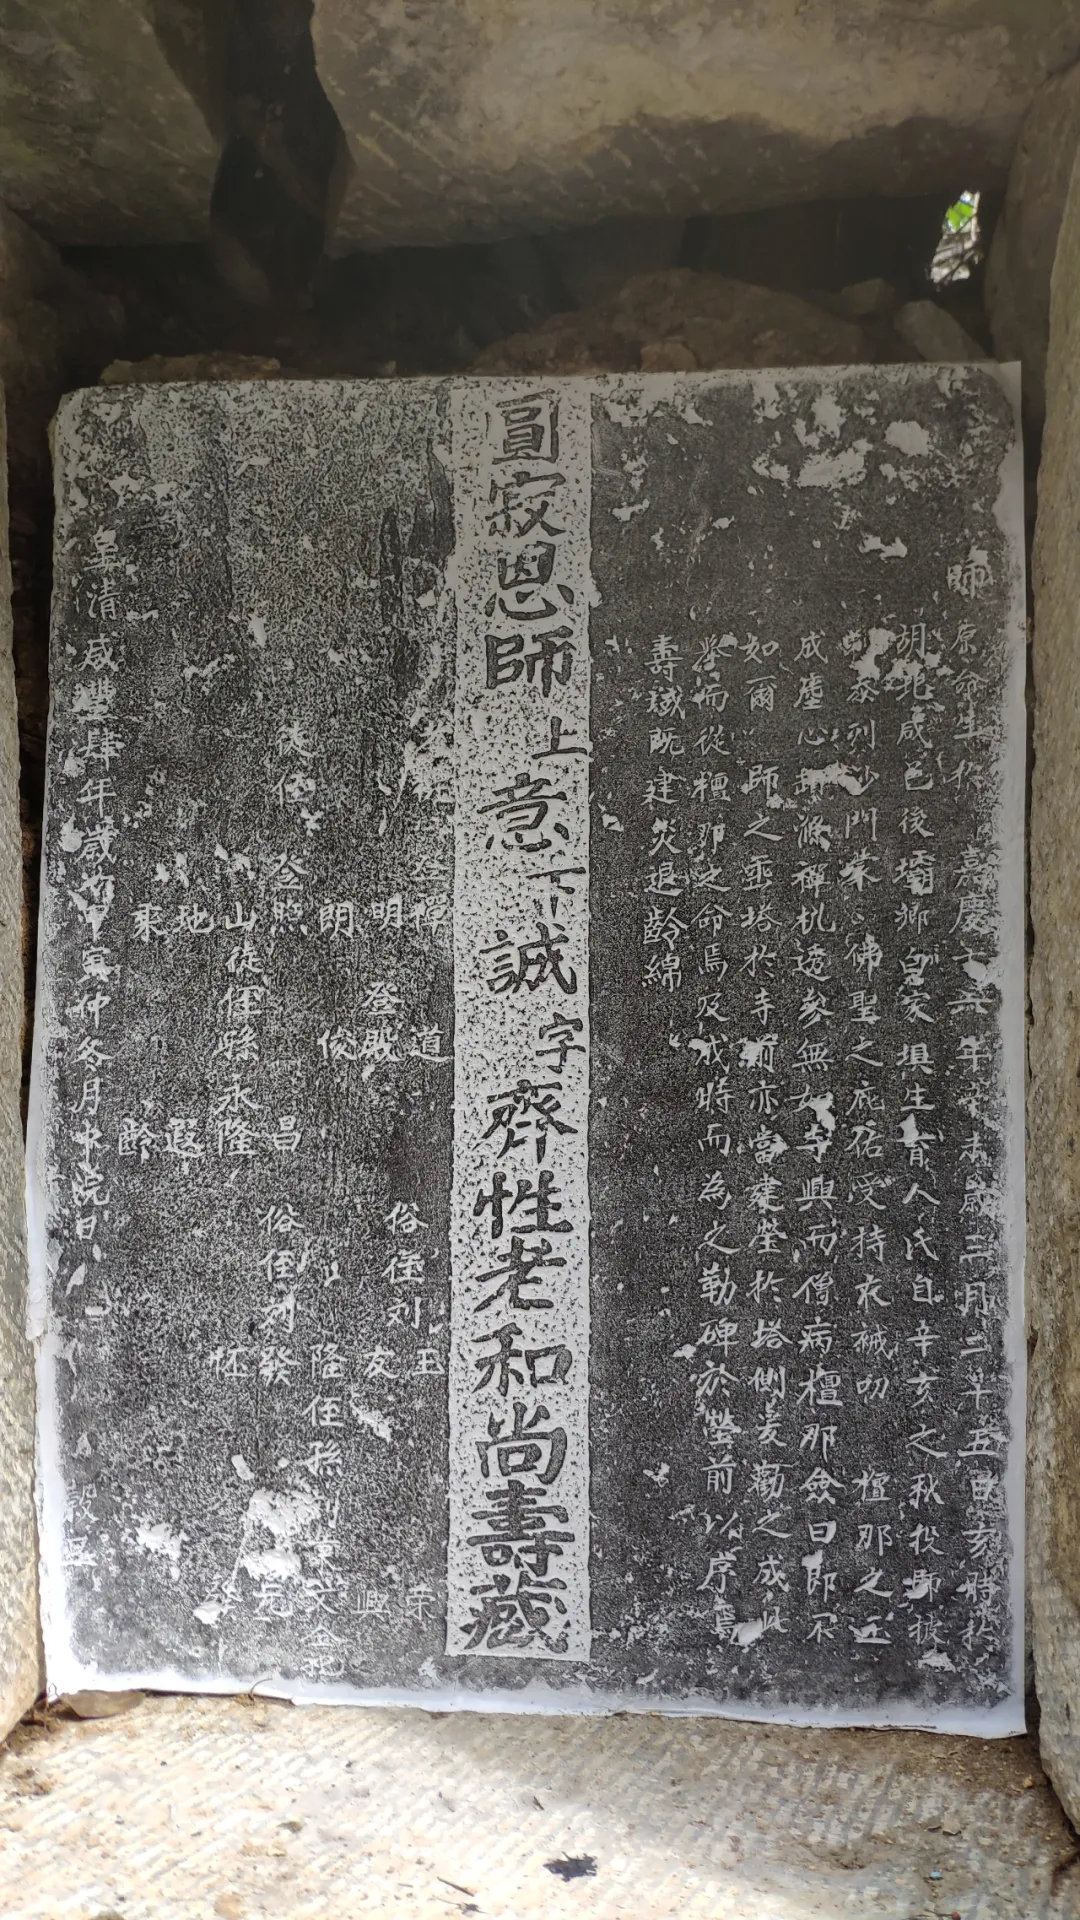 師原命生於嘉慶十六年辛未歲三月二十五日亥時於
胡北咸邑後壩鄉白家埧生育人氏自辛亥之秋投師披
剃忝列沙門蒙佛聖之庇佑受持衣祴叨檀那之
成塵心卸滌禪机透參無如寺興而僧病檀那僉曰即
如爾師之垂塔於寺前亦當建塋於塔側爰勸之成此
舉而從檀那之命焉及戒時而為之勒碑於塋前以序焉
壽誠既建災退齡綿
圓寂恩師上意下誠字齊性老和尚壽藏
登禪道 玉榮
明登殿俗侄刘友興
朗俊 隆侄孫刘
徒侄登照昌俗侄刘發
山徒侄孫永隆 怀
地遐
來齡
皇清咸豐肆年歲次甲寅仲冬月中浣日